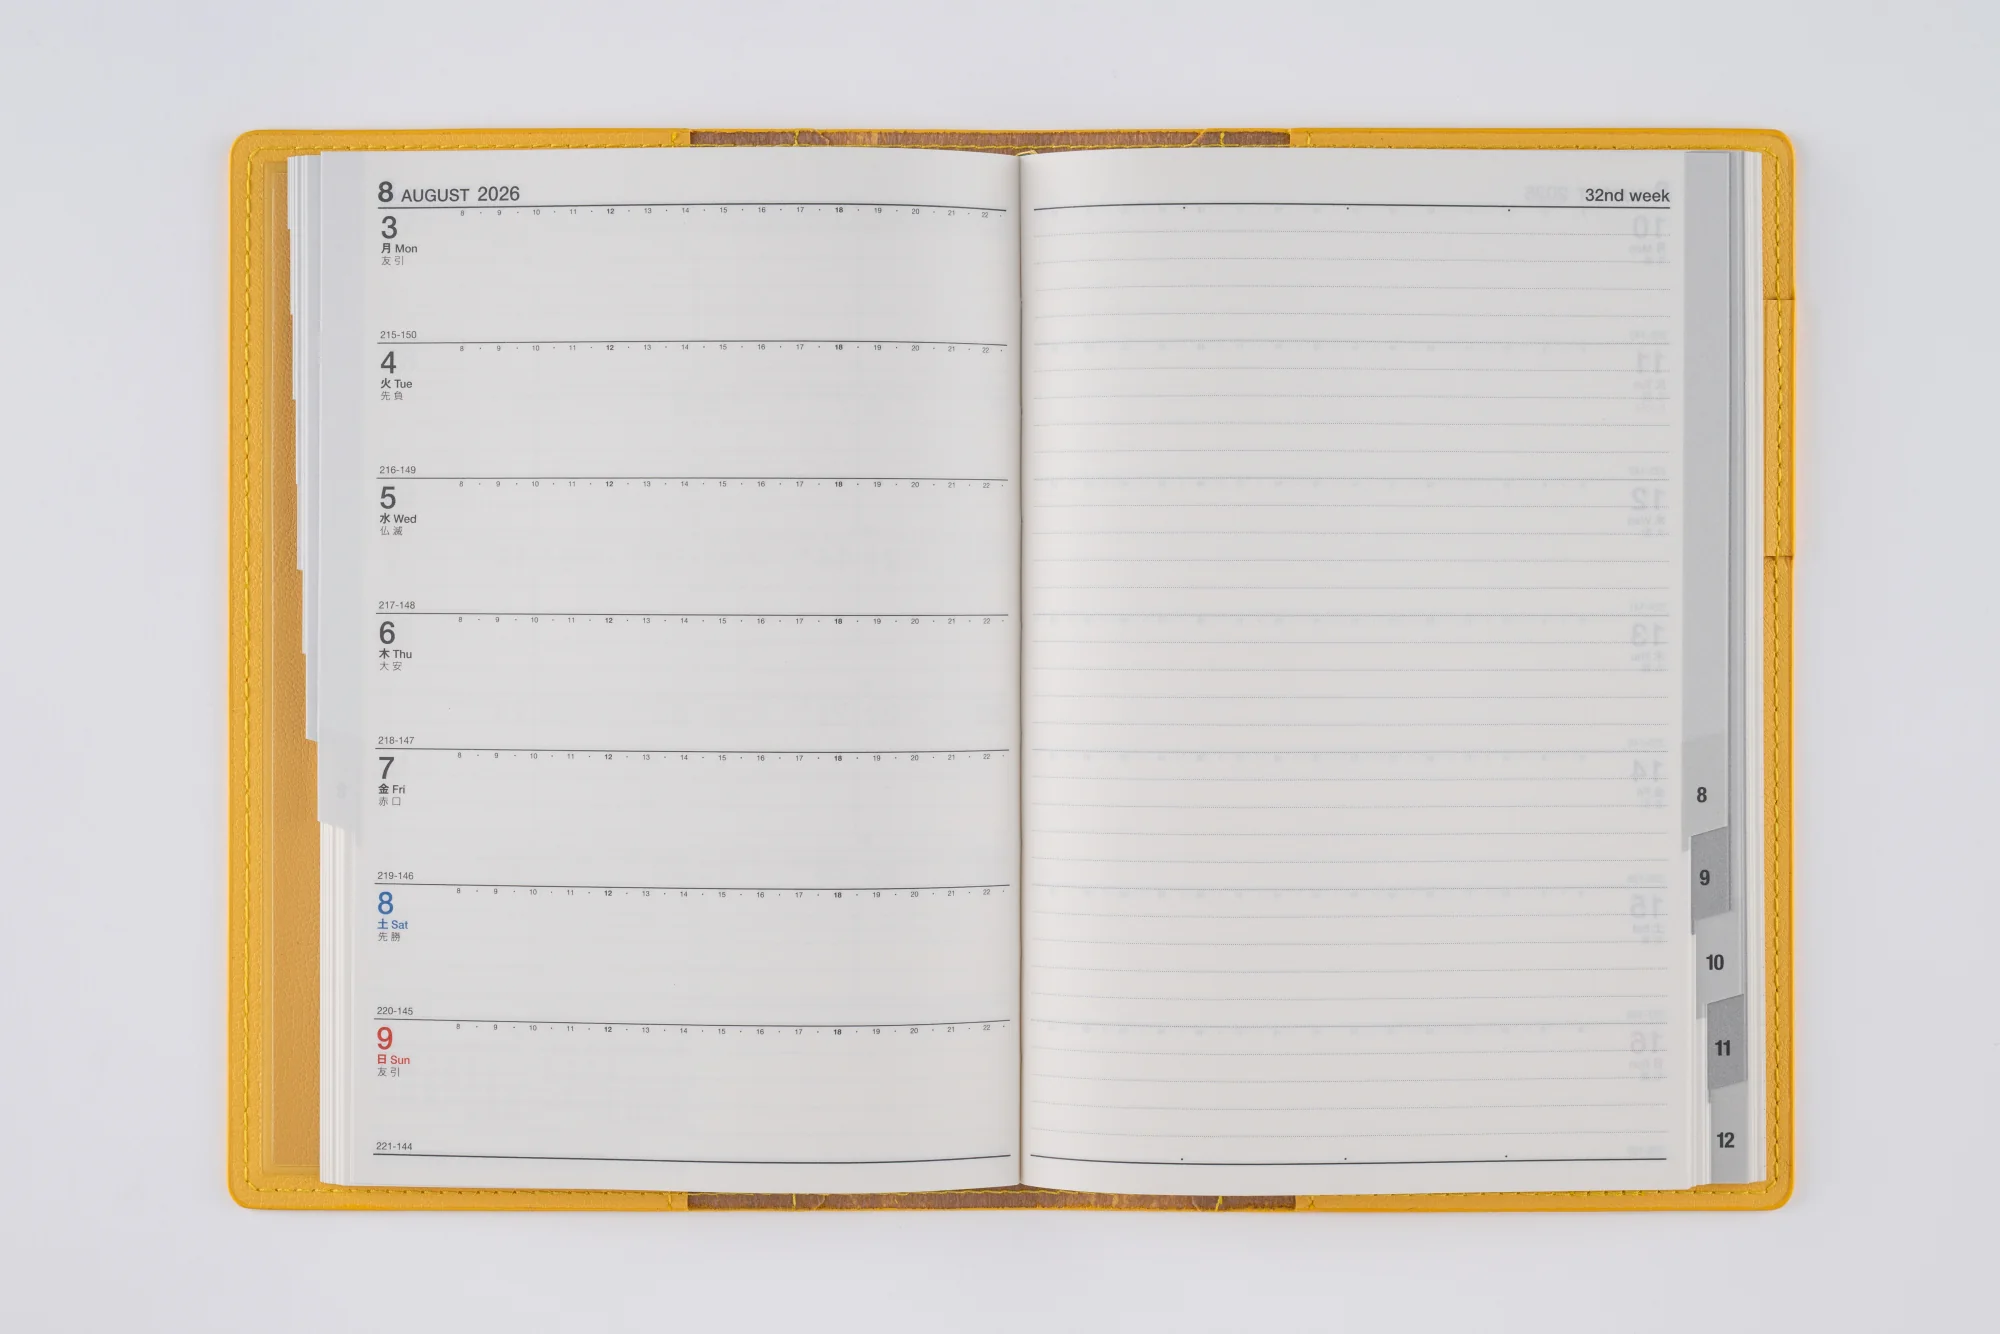 8 AUGUST 2026
8 · 9 · 10 · 11 · 12 · 13 · 14 · 15 · 16 · 17 · 18 · 19 · 20 · 21 · 22 ·
3
月 Mon
友引
215-150
8 · 9 · 10 · 11 · 12 · 13 · 14 · 15 · 16 · 17 · 18 · 19 · 20 · 21 · 22 ·
4
火 Tue
先負
216-149
8 · 9 · 10 · 11 · 12 · 13 · 14 · 15 · 16 · 17 · 18 · 19 · 20 · 21 · 22 ·
5
水 Wed
仏滅
217-148
8 · 9 · 10 · 11 · 12 · 13 · 14 · 15 · 16 · 17 · 18 · 19 · 20 · 21 · 22 ·
6
木 Thu
大安
218-147
8 · 9 · 10 · 11 · 12 · 13 · 14 · 15 · 16 · 17 · 18 · 19 · 20 · 21 · 22 ·
7
金 Fri
赤口
219-146
8 · 9 · 10 · 11 · 12 · 13 · 14 · 15 · 16 · 17 · 18 · 19 · 20 · 21 · 22 ·
8
土 Sat
先勝
220-145
8 · 9 · 10 · 11 · 12 · 13 · 14 · 15 · 16 · 17 · 18 · 19 · 20 · 21 · 22 ·
9
日 Sun
友引
221-144
32nd week
8
9
10
11
12